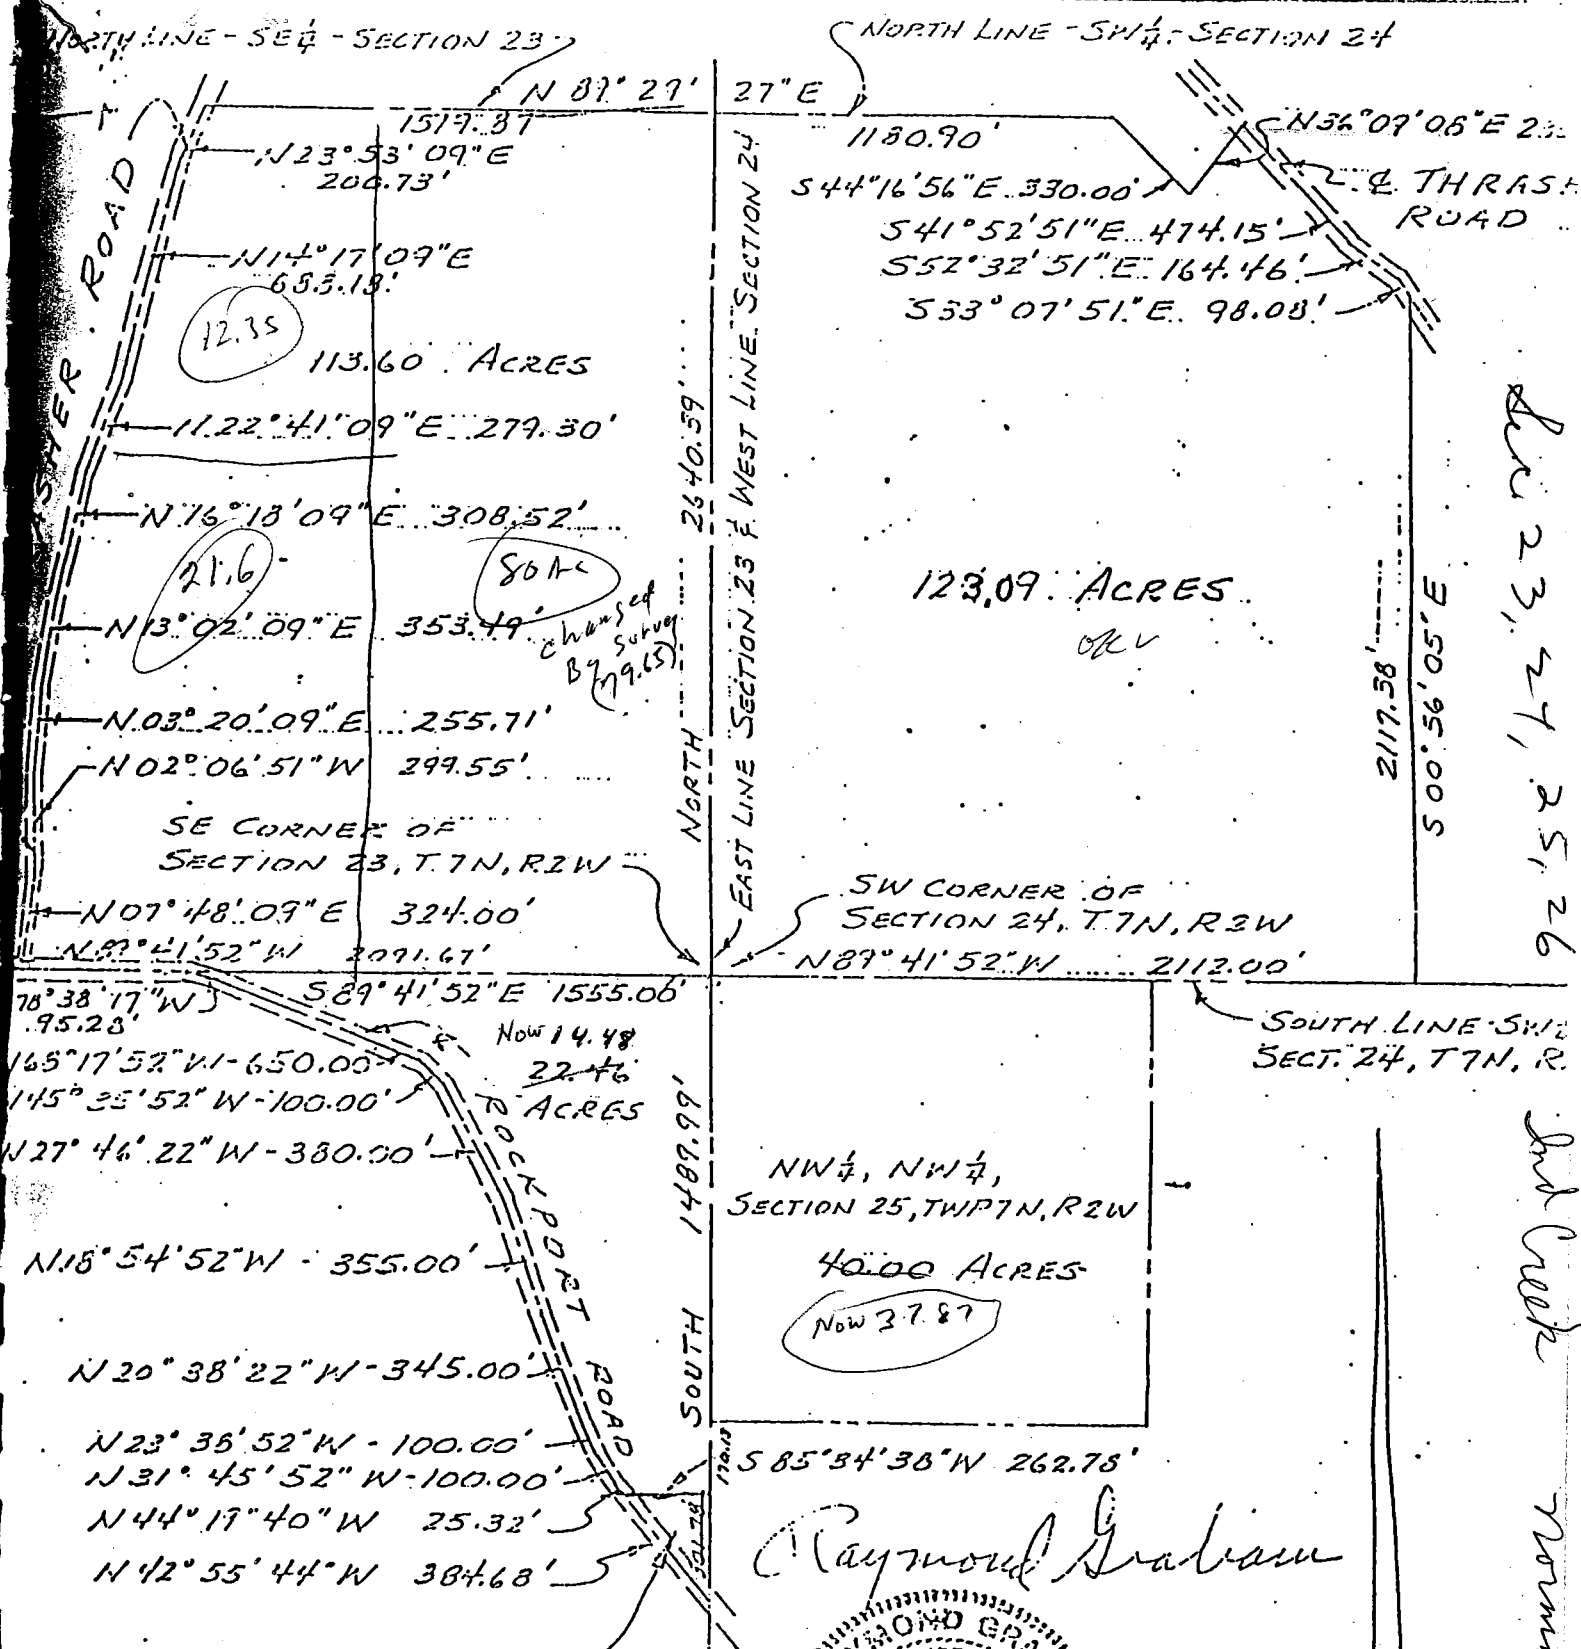 NORTH LINE - SE¼ - SECTION 23
NORTH LINE - SW¼ - SECTION 24
N 89° 29' 27" E
1519.87
1180.90'
N36°09'08"E
N23°53'09"E
200.73'
S44°16'56"E 330.00'
℄ THRASH
ROAD
S41°52'51"E 474.15'
S52°32'51"E 164.46'
S33°07'51"E 98.08'
N14°17'09"E
683.18'
12.35
113.60 ACRES
N22°41'09"E 279.30'
N16°18'09"E 308.52'
21.6
80 Ac
changed
By Survey
(79.65)
N13°02'09"E 353.49'
N03°20'09"E 255.71'
N02°06'51"W 299.55'
SE CORNER OF
SECTION 23, T.7N, R2W
N07°48'09"E 324.00'
N89°41'52"W 2091.67'
ROAD
NORTH 2640.59'
EAST LINE SECTION 23 & WEST LINE SECTION 24
123.09 ACRES
ok ✓
2117.38'
S 00°56'05"E
SW CORNER OF
SECTION 24, T7N, R2W
N89°41'52"W 2112.00'
SOUTH LINE SW
SECT. 24, T7N, R.
S89°41'52"E 1555.06'
78°38'17"W
95.28'
Now 14.48
22.46
ACRES
65°17'52"W - 650.00'
45°35'52"W - 100.00'
N27°46'22"W - 380.00'
N18°54'52"W - 355.00'
N20°38'22"W - 345.00'
N23°35'52"W - 100.00'
N31°45'52"W - 100.00'
N44°19'40"W 25.32'
N42°55'44"W 384.68'
ROCKPORT ROAD
SOUTH 1489.99'
170.13
NW¼, NW¼,
SECTION 25, TWP7N, R2W
40.00 ACRES
Now 37.87
S85°34'38"W 262.78'
Raymond Graham
Sec 23, 24, 25, 26
Ind Creek